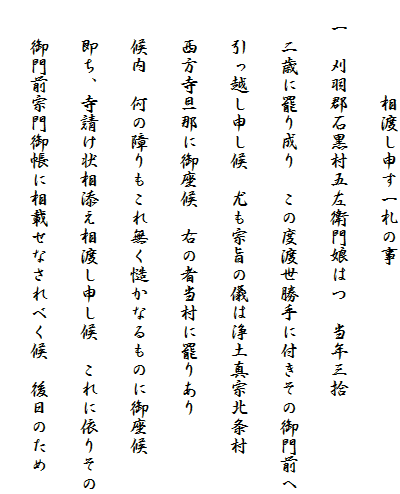 相渡し申す一札の事
一　刈羽郡石黒村五左衛門娘はつ　当年三拾
二歳に罷り成り　この度渡世勝手に付きその御門前へ
引っ越し申し候　尤も宗旨の儀は浄土真宗北条村
西方寺旦那に御座候　右の者当村に罷りあり
候内　何の障りもこれ無く慥かなるものに御座候
即ち、寺請け状相添え相渡し申し候　これに依りその
御門前宗門御帳に相載せなされべく候　後日のため